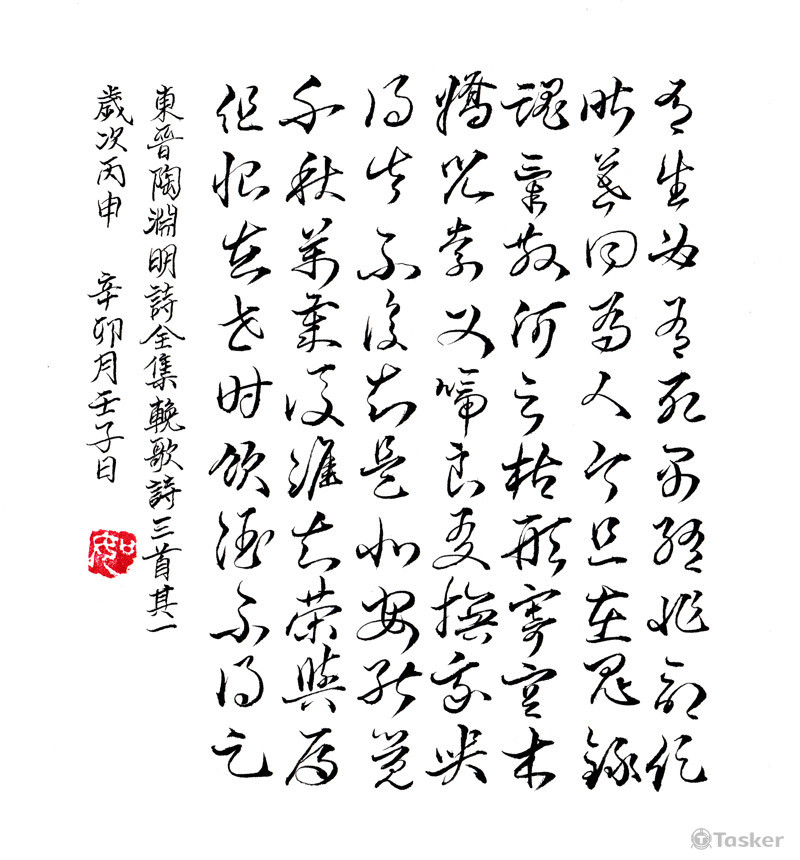 有生必有死早終非命促
昨暮同為人今旦在鬼錄
魂氣散何之枯形寄空木
嬌兒索父啼良友撫我哭
得失不復知是非安能覺
千秋萬歲後誰知榮與辱
但恨在世時飲酒不得足
東晉陶淵明詩全集輓歌詩三首其一
歲次丙申 辛卯月壬子日
Tasker